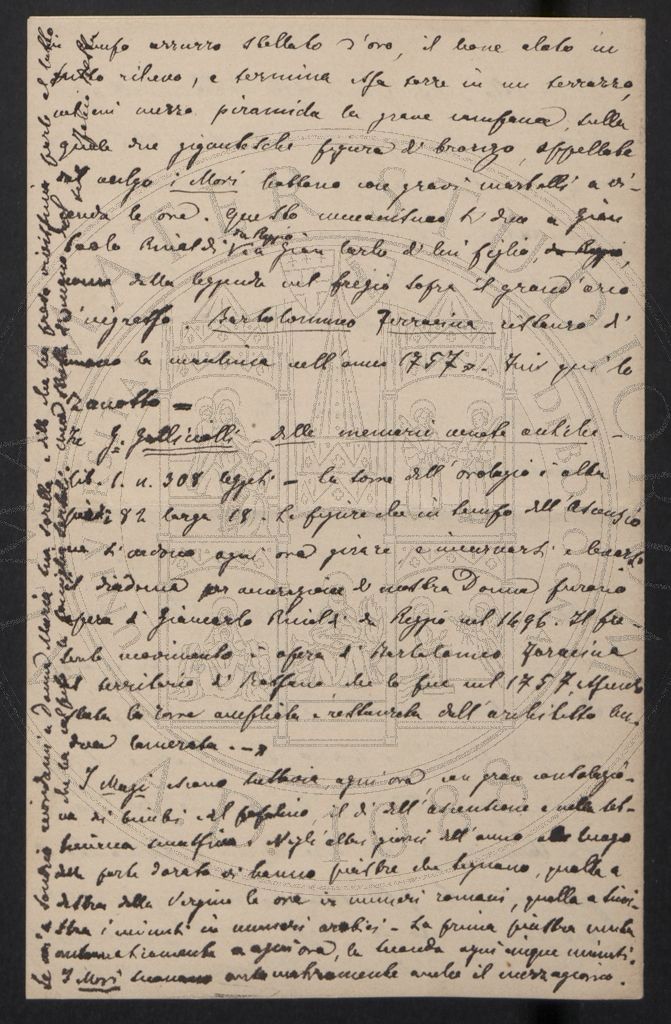 campo azzurro stellato d'oro, il leone alato in
tutto rilievo, e termina essa torre in un terrazzo,
mezza piramide la grave campana, sulla
quale due gigantesche figure di bronzo, appellate
dal volgo i Mori battono con gravi martelli a vi-
cenda le ore. Questo si deve a Gian
Paolo Rinaldi da Reggio e a Gian Carlo di lui figlio, da Reggio,
come dalla leggenda nel fregio sopra il grand'arco
d'ingresso. Bartolommeo Ferracina restaurò di
nuovo la macchina nell'anno 1757». Fin qui lo
Zanotto =
In G. Gallicciolli - delle memorie venete antiche -
lib. 1. n. 308 leggesi - la torre dell'orologio è alta
piedi 82 larga 18. Le figure che in tempo dell'Ascensio
ne si vedono ogni ora girare, e inchinarsi e levarsi
il diadema per venerazione di nostra Donna furono
opera di Giancarlo Rinaldi da Reggio nel 1496. Il pre-
sente movimento è opera di Bartolomeo Feracina
del territorio di Bassano che lo fece nel 1757, essendo
stata la torre ampliata e restaurata dall'architetto An-
drea Camerata. -»
I Magi escono tuttavia, ogni ora, con gran consolazio-
ne di bimbi e del popolino, il dì dell'ascensione e nella set-
timana successiva. Negli altri giorni dell'anno luogo
delle porte dorate vi hanno piastre che segnano, quella a
destra della Vergine le ore in numeri romani, quella a sini-
stra i minuti in numeri arabici - La prima piastra muta
automaticamente a ogni ora, la seconda ogni cinque minuti.
I Mori suonano automaticamente anche il mezzogiorno.
Se vai a Sondrio ricordami a donna Maria tua sorella e dille che ha
che ha nel